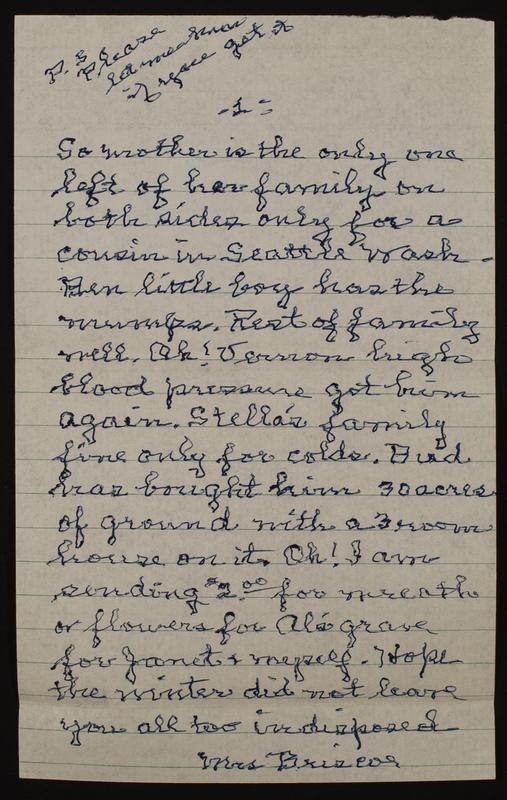 P.S. Please
let me know
if you get it
-1-
So mother is the only one
left of her family on
both sides only for a
cousin in Seattle Wash.
Her little boy has the
mumps. Rest of family
well. Oh! Vernon high
blood pressure got him
again. Stella's family
fine only for colds. Bud
has bought him 30 acres
of ground with a 3 room
house on it. Oh! I am
sending $2.00 for wreath
or flowers for Al's grave
for Janet & myself. Hope
the winter did not leave
you all too indisposed
Mrs Briscoe